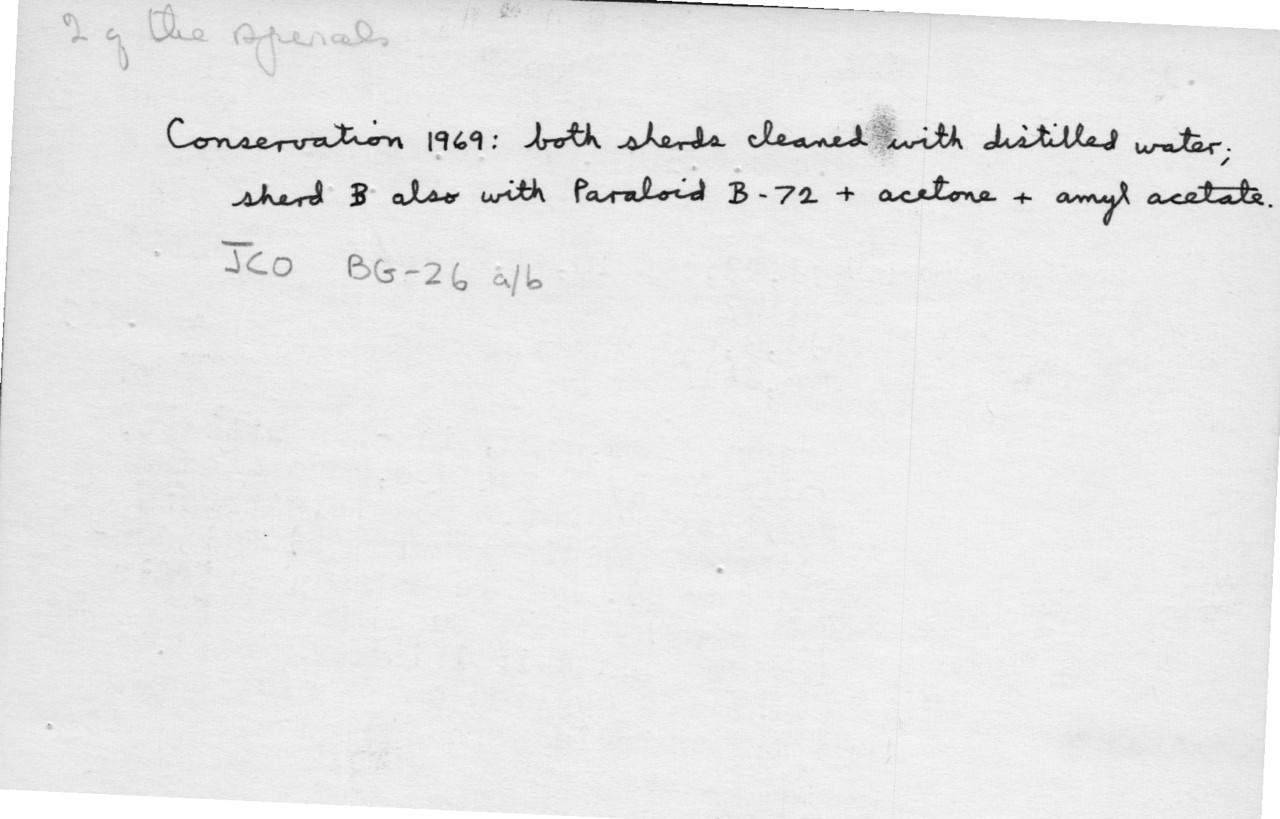 2 of the specials
Conservation 1969: both sherds cleaned with distilled water;
sherd B also with Paraloid B-72 + acetone + amyl acetate.
JCO BG-26 a/b